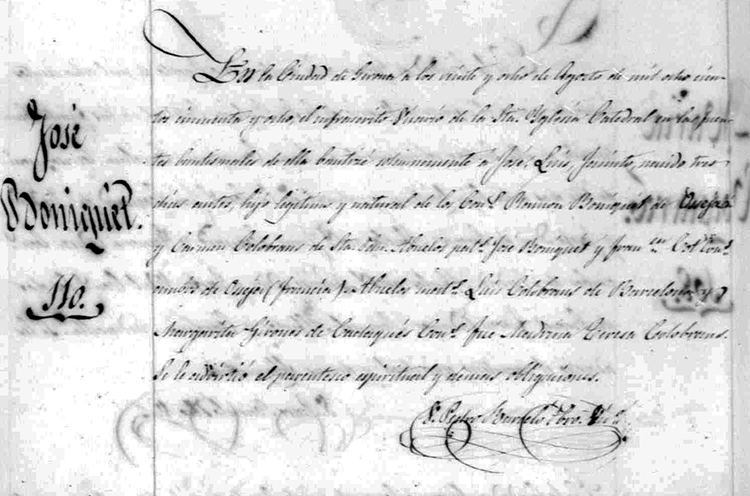 José
Boniquet.
110.
En la Ciudad de Gerona á los veinte y ocho de Agosto de mil ocho cien-
tos cincuenta y ocho, el infrascrito Vicario de la Sta. Yglesia Catedral en las fuen-
tes bautismales de ella bautizé solemnemente á José, Luis, Jacinto, nacido tres
dias antes, hijo legítimo y natural de los Cons. Ramon Boniquet de
y Carmen Colobrans de Abuelos pats. José Boniquet y Cons.
ambos de (Francia). Abuelos mats. Luis Colobrans de Barcelona y
Margarita Girones de Cons. fue Madrina Teresa Colobrans.
Se le advirtió el parentesco espiritual y demas obligaciones.
Pedro Pbro.